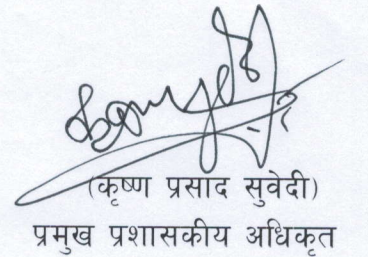 (कृष्ण प्रसाद सुवेदी)
प्रमुख प्रशासकीय अधिकृत